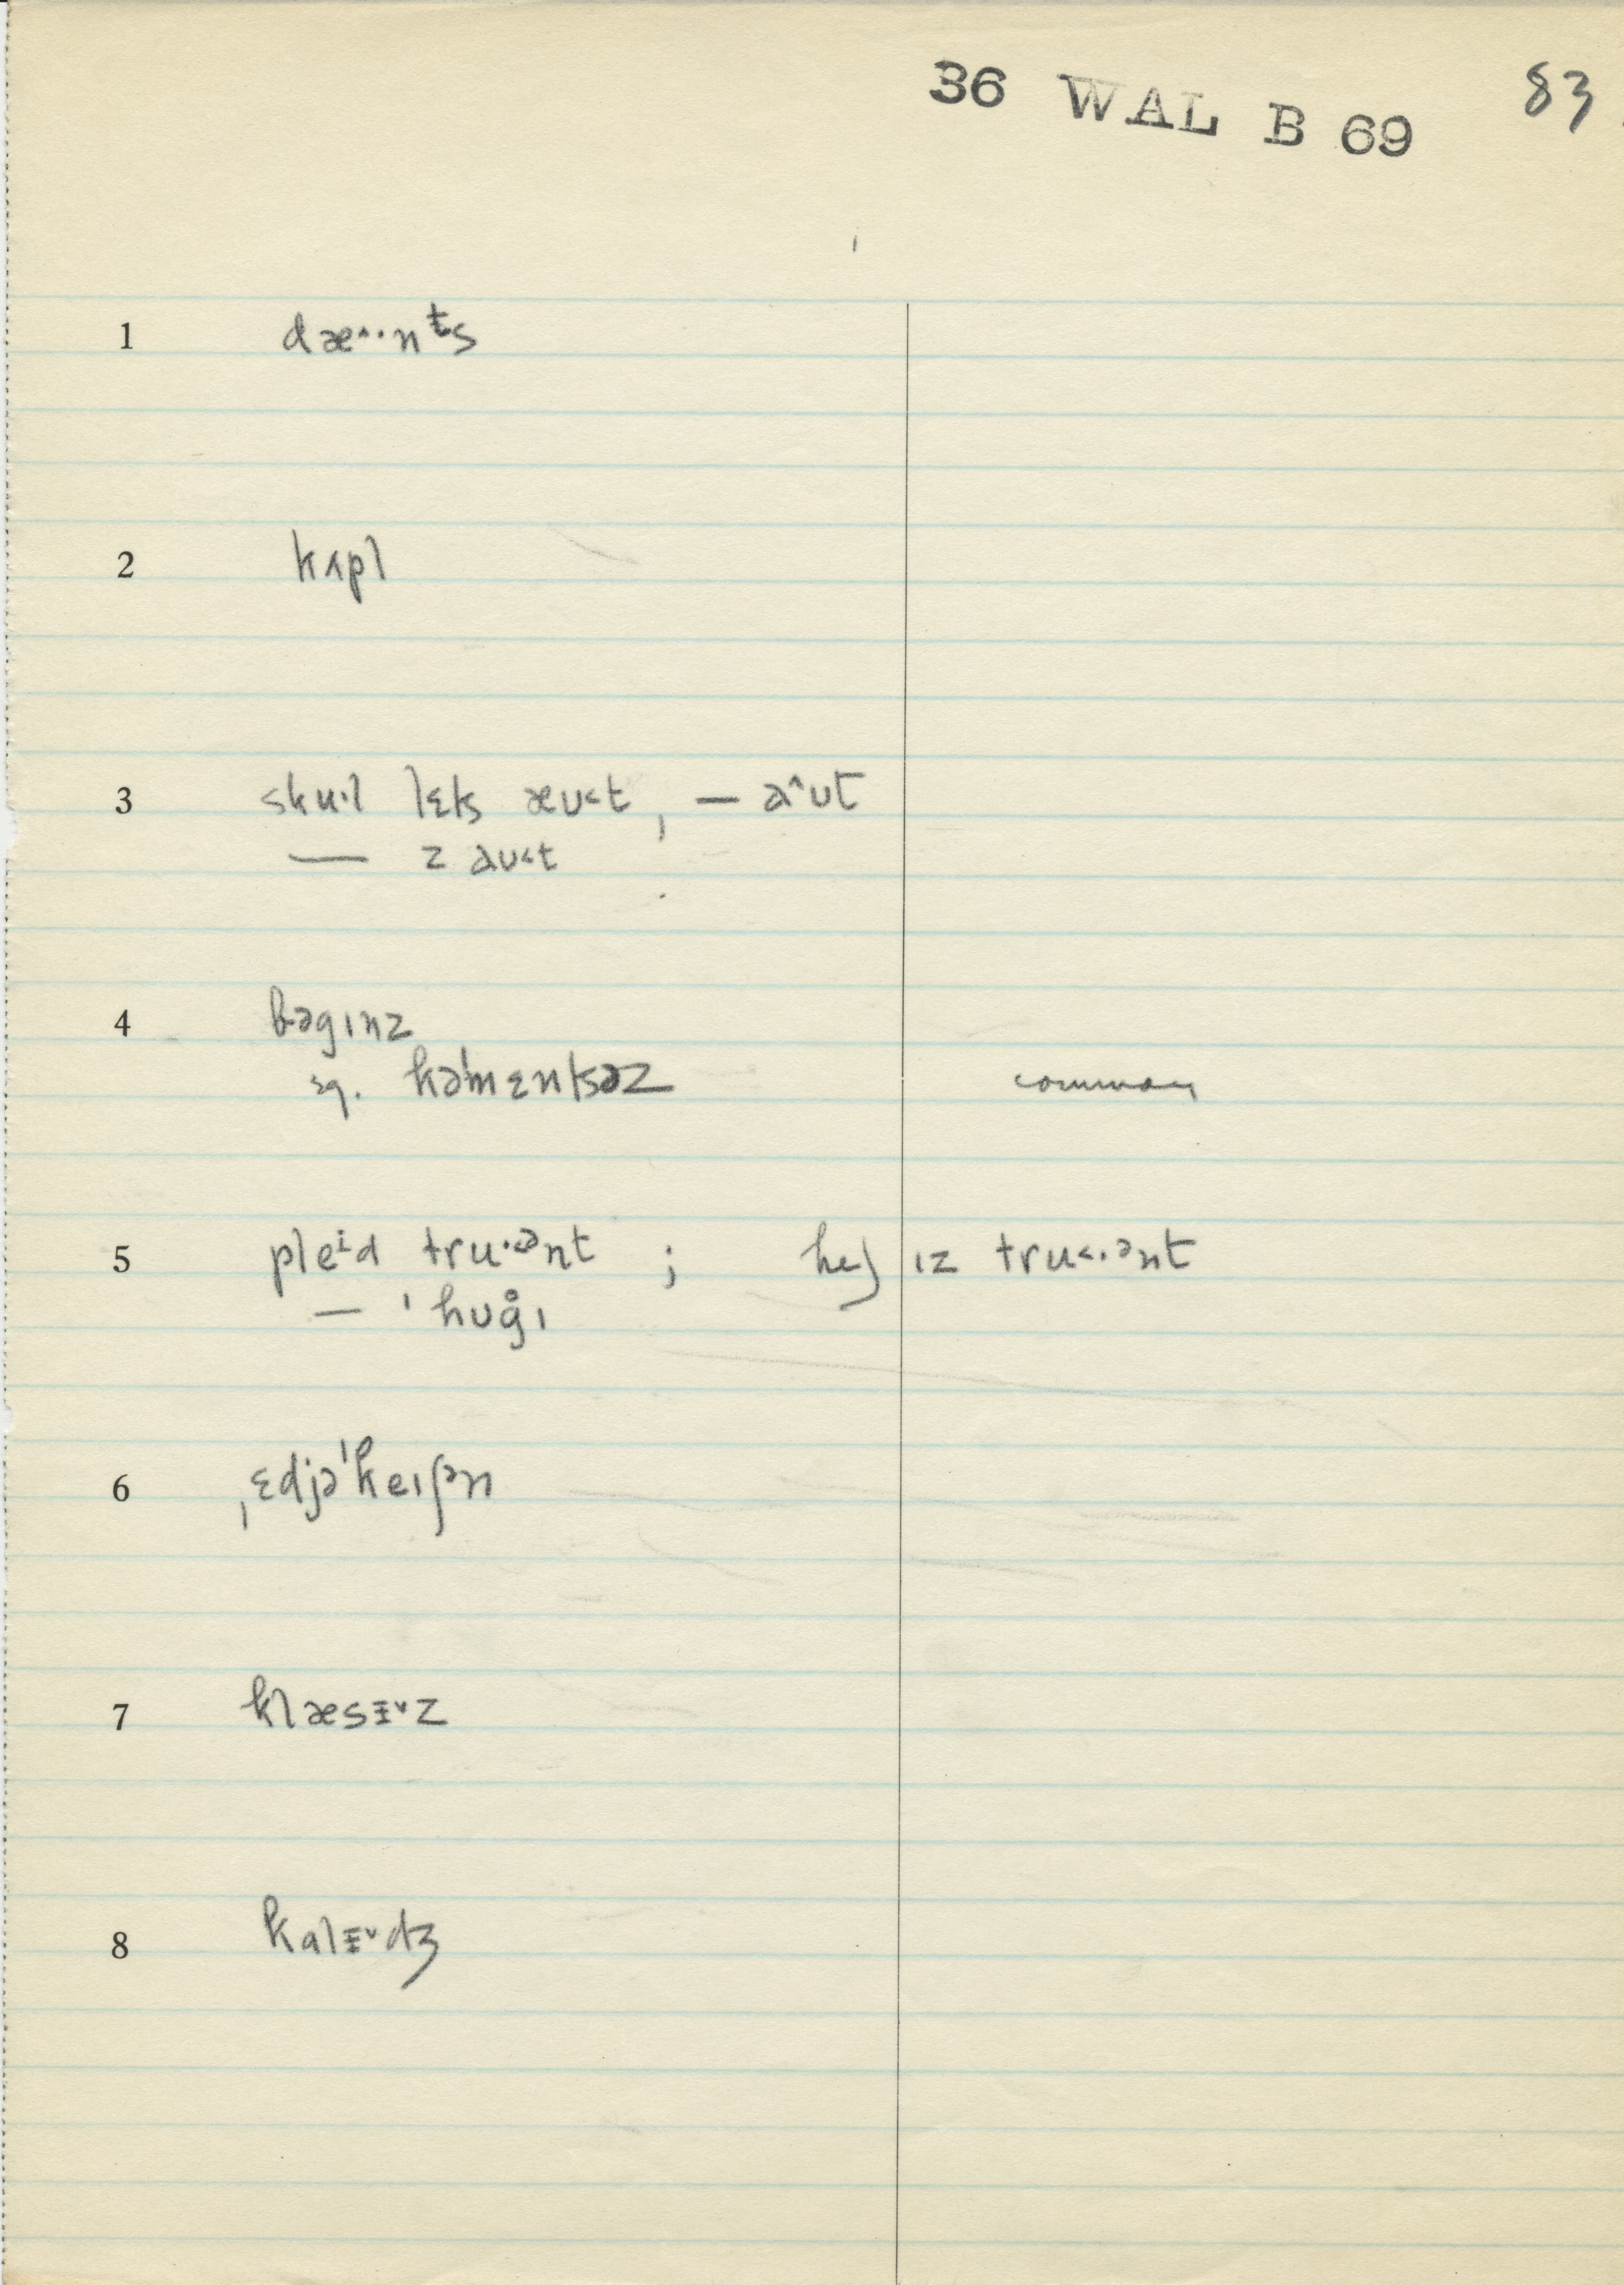 36 WAL B 69 83
1 dæ˄··nᵗs
2 kʌpl
3 sku·l lɛts æʊ˂t, — a˄ʊt
— z aʊ˂t
4 bəgɪnz
kə'mɛntsəz common
5 pleⁱd tru·˂ənt ; he) ɪz tru˂·ənt
— 'hʊg̊ɪ
6 ˌɛdjə'keɪʃən
7 klæsɪ˅z
8 kalɪ˅dʒ